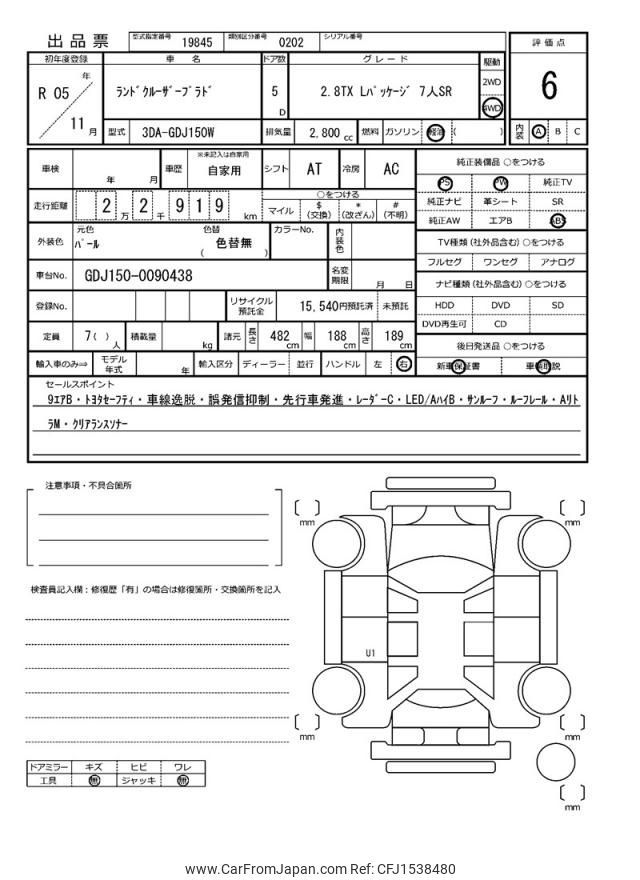 出品票 型式指定番号 19845 類別区分番号 0202 シリアル番号
初年度登録 車名 ドア数 グレード 駆動 評価点
R 05 年 11 月 ﾗﾝﾄﾞｸﾙｰｻﾞｰﾌﾟﾗﾄﾞ 5 D 2.8TX Lﾊﾟｯｹｰｼﾞ 7人SR 2WD 4WD 6
型式 3DA-GDJ150W 排気量 2,800 cc 燃料 ガソリン 軽油 ( ) 内装 A B C
車検 年 月 車歴 ※未記入は自家用 自家用 シフト AT 冷房 AC
走行距離 2 万 2 千 9 1 9 km ○をつける
マイル $ (交換) * (改ざん) # (不明)
外装色 元色 ﾊﾟｰﾙ 色替 色替無 ( ) カラーNo. 内装色
車台No. GDJ150-0090438 名変期限 月 日
登録No. リサイクル預託金 15,540円預託済 未預託
定員 7 ( ) 人 積載量 kg 諸元 長さ 482 cm 幅 188 cm 高さ 189 cm
輸入車のみ⇒ モデル年式 年 輸入区分 ディーラー 並行 ハンドル 左 右
純正装備品 ○をつける
PS PW 純正TV
純正ナビ 革シート SR
純正AW エアB ABS
TV種類 (社外品含む) ○をつける
フルセグ ワンセグ アナログ
ナビ種類 (社外品含む) ○をつける
HDD DVD SD
DVD再生可 CD
後日発送品 ○をつける
新車保証書 車輌取説
セールスポイント
9ｴｱB・ﾄﾖﾀｾｰﾌﾃｨ・車線逸脱・誤発信抑制・先行車発進・ﾚｰﾀﾞｰC・LED/AﾊｲB・ｻﾝﾙｰﾌ・ﾙｰﾌﾚｰﾙ・Aﾘﾄ
ﾗM・ｸﾘｱﾗﾝｽｿﾅｰ
注意事項・不具合箇所
検査員記入欄：修復歴「有」の場合は修復箇所・交換箇所を記入
ドアミラー キズ ヒビ ワレ
工具 無 ジャッキ 無
mm
mm
U1
mm
mm
mm
www.CarFromJapan.com Ref: CFJ1538480